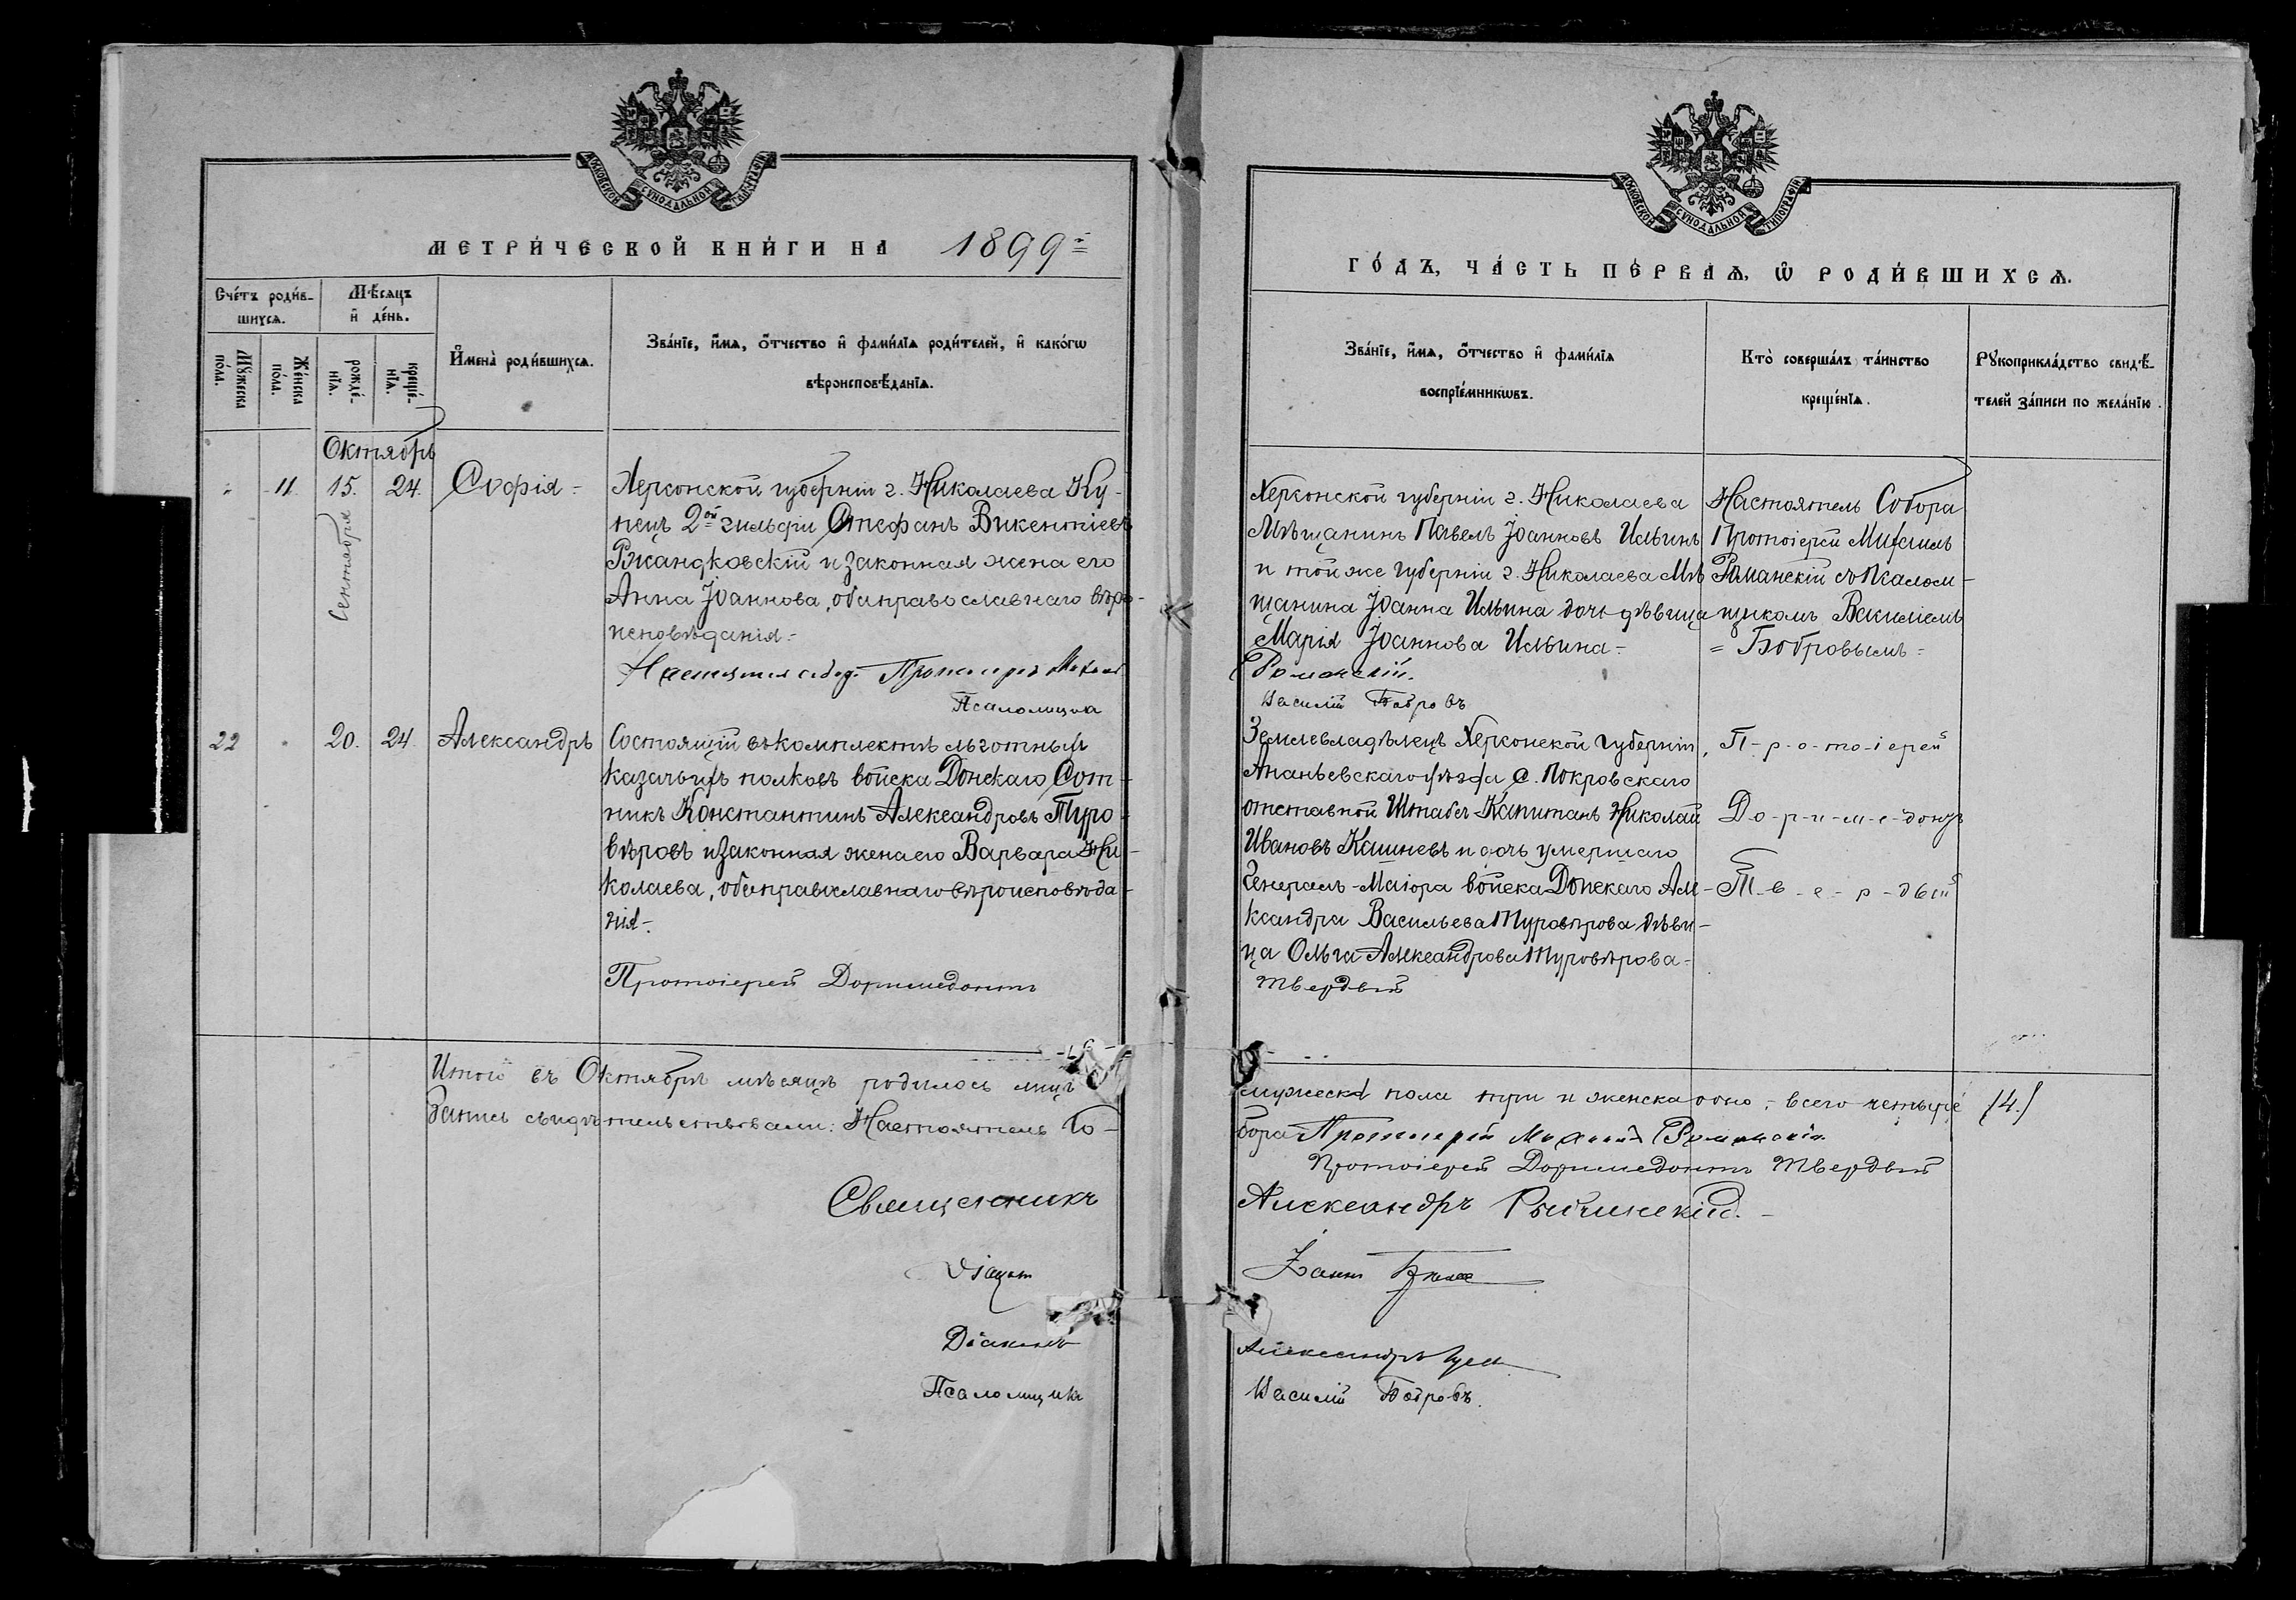 МОСКОВСКОЙ СѴНОДАЛЬНОЙ ТИПОГРАФІИ
МЕТРИ́ЧЕСКОЙ КНИ́ГИ НА 1899й
Сче́тъ роди́в-
шихсѧ.
Мѣ́сѧцъ
и҆ де́нь.
Мꙋ́жеска
по́ла.
Же́нска
по́ла.
рожде́-
нїѧ.
креще́-
нїѧ.
И҆мена̀ роди́вшихсѧ.
Зва́нїе, и҆́мѧ, ѻ҆́тчество и҆ фами́лїѧ роди́телей, и҆ како́гѡ
вѣроисповѣ́данїѧ.
Октябрь
11. 15. 24. Софія-
Сентября
Херсонской губерніи г. Николаева Ку-
пецъ 2ой гильдіи Стефанъ Викентіевъ
Ржандковскій и законная жена его
Анна Іоаннова, оба православнаго вѣро-
исповѣданія.-
Настоятель собора Протоіерей Михаил
Псаломщик
22 20. 24. Александръ
Состоящій въ комплектѣ льготныхъ
казачьихъ полковъ войска Донскаго Сот-
никъ Константинъ Александровъ Туро-
вѣровъ и законная жена его Варвара Ни-
колаева, оба православнаго вѣроисповѣда-
нія-.
Протоіерей Доримедонтъ
Итого въ Октябрѣ мѣсяцѣ родилось лицъ
Запись свидѣтельствовали: Настоятель Со-
Священникъ
Діаконъ
Діаконъ
Псаломщикъ
МОСКОВСКОЙ СѴНОДАЛЬНОЙ ТИПОГРАФІИ
ГО́ДЪ, ЧА́СТЬ ПЕ́РВАѦ, Ѡ҆ РОДИ́ВШИХСѦ.
Зва́нїе, и҆́мѧ, ѻ҆́тчество и҆ фами́лїѧ
воспрїе́мникѡвъ.
Кто̀ соверша́лъ та́инство
креще́нїѧ.
Рꙋкоприкла́дство свидѣ́-
телей за́писи по жела́нїю.
Херсонской губерніи г. Николаева
Мѣщанинъ Павелъ Іоанновъ Ильинъ
и той же губерніи г. Николаева Мѣ
щанина Іоанна Ильина дочь дѣвица
Марія Іоаннова Ильина-
Романскій.
Василій Бобровъ
Настоятель Собора
Протоіерей Михаилъ
Романскій съ Псалом-
щикомъ Василіемъ
= Бобровымъ =
Землевладѣлецъ Херсонской губерніи,
Ананьевскаго уѣзда с. Покровскаго
отставной Штабсъ-Капитанъ Николай
Ивановъ Кашневъ и дочь умершаго
Генералъ-Маіора войска Донскаго Але-
ксандра Васильева Туровѣрова дѣви-
ца Ольга Александрова Туровѣрова-
Твердый
П-р-о-то-іерей
До-р-и-м-е-донтъ
Т-в-е-р-дый
мужеска пола три и женска одно, всего четыре /4./
бора Протоіерей Михаилъ Романскій
Протоіерей Доримедонтъ Твердый
Александръ
Василій Бобровъ.